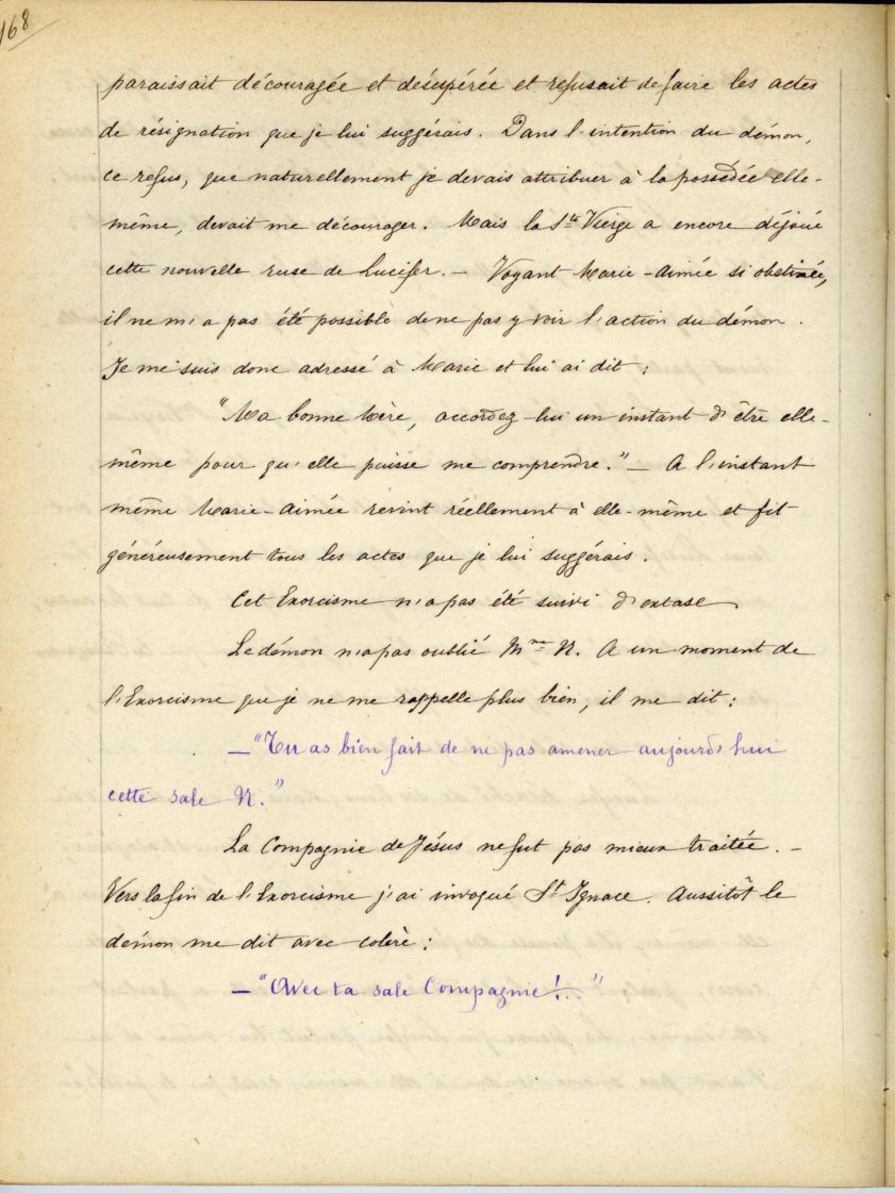 168
paraissait découragée et désespérée et refusait de faire les actes
de résignation que je lui suggérais. Dans l'intention du démon,
ce refus, que naturellement je devais attribuer à la possédée elle-
même, devait me décourager. Mais la Ste Vierge a encore déjoué
cette nouvelle ruse de Lucifer. — Voyant Marie-Aimée si obstinée,
il ne m'a pas été possible de ne pas y voir l'action du démon.
Je me suis donc adressé à Marie et lui ai dit :
"Ma bonne Mère, accordez-lui un instant d'être elle-
même pour qu'elle puisse me comprendre." — A l'instant
même Marie-Aimée revint réellement à elle-même et fit
généreusement tous les actes que je lui suggérais.
Cet Exorcisme n'a pas été suivi d'extase.
Le démon n'a pas oublié Mme N. A un moment de
l'Exorcisme que je ne me rappelle plus bien, il me dit :
— "Tu as bien fait de ne pas amener aujourd'hui
cette sale N."
La Compagnie de Jésus ne fut pas mieux traitée. —
Vers la fin de l'Exorcisme j'ai invoqué St Ignace. Aussitôt le
démon me dit avec colère :
— "Avec ta sale Compagnie !.."